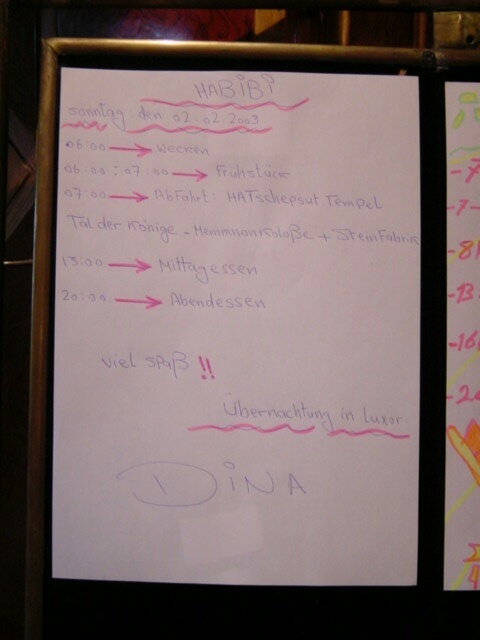 HABiBi
Sonntag den 02.02.2003
06:00 → wecken
06:00 : 07:00 → Frühstück
07:00 → Abfahrt: HATschepsut Tempel
Tal der Könige - Memmnonkoloße + Steinfabrik
13:00 → Mittagessen
20:00 → Abendessen
viel spaß !!
Übernachtung in Luxor.
DiNA
-7
-7-
-8
-13
-16
-20